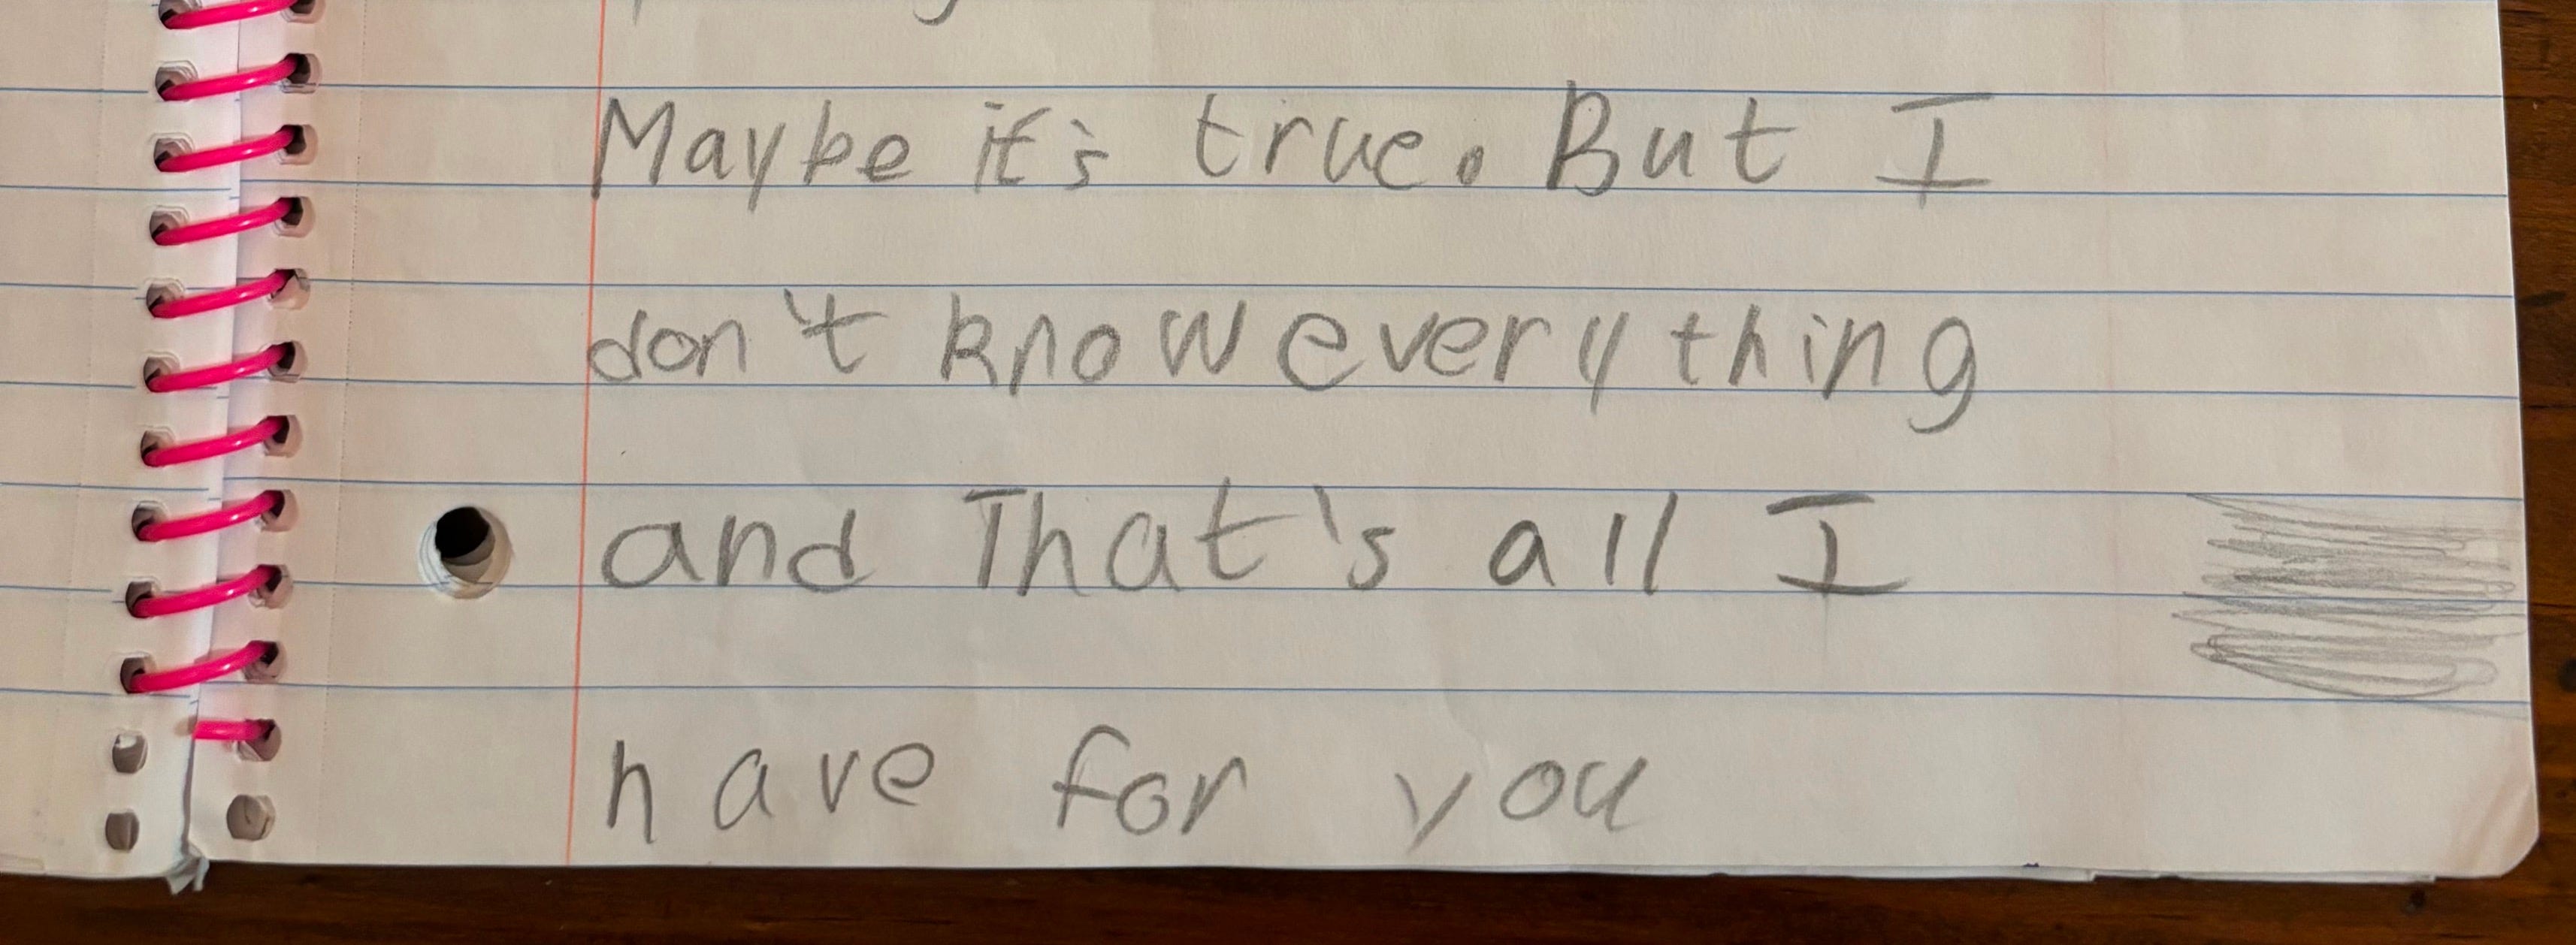 Maybe it's true. But I
don't know everything
and That's all I
have for you